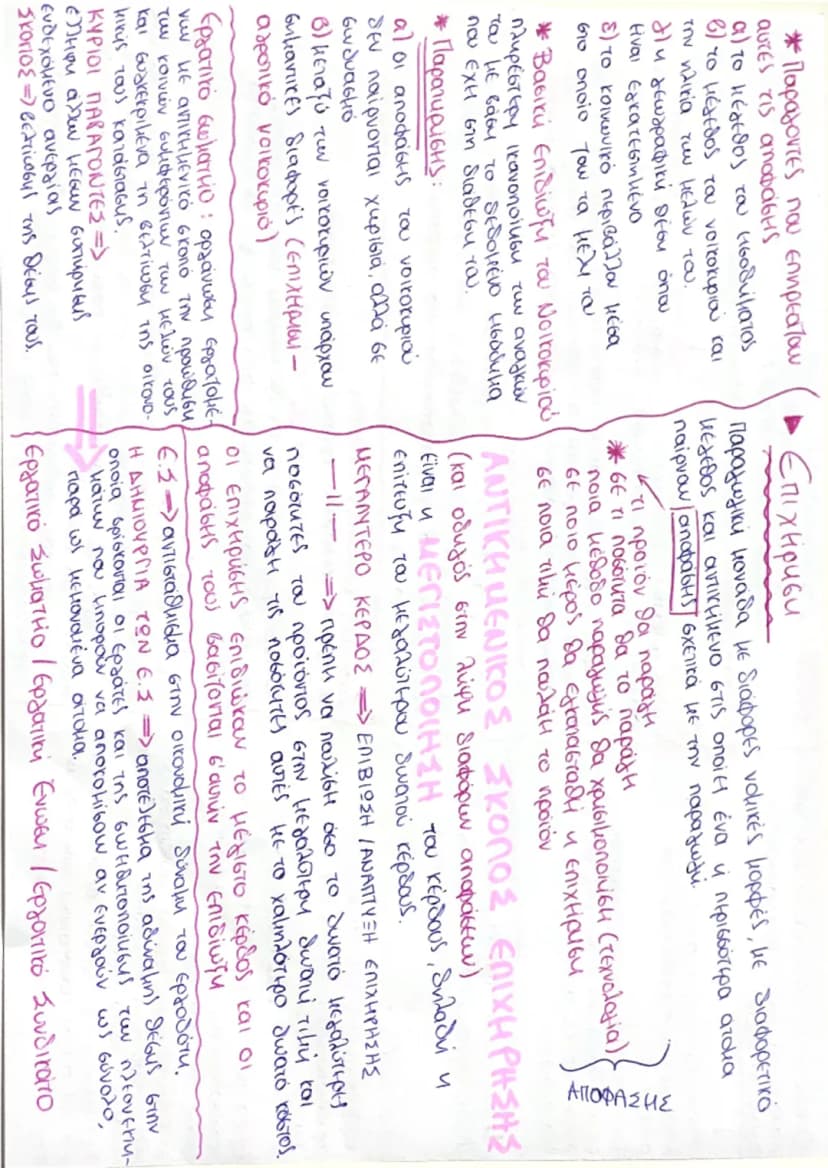 * Παράγοντες που επηρεάζουν
αυτές τις αποφάσης
α) το μέγεθος του εισοδήματος
β) το μέγεθος του νοικοκυριού και
την ηλικία των μελών του.
γ) η γεωγραφική θέση όπου
ήναι εγκατεστημένο
ε) το κοινωνικό περιβάλλον μέσα
στο οποίο ζουν τα μέλη του
* Βασική επιδίωξη του Νοικοκυριού
πληρέστερη ικανοποίηση των αναγκών
του με βάση το δεδομένο εισόδημα
που έχη στη διάθεση του.
* Παρατηρίσης:
α) οι αποφάσης του νοικοκυριού
δεν παίρνονται χωριστά, αλλά σε
συνδυασμό
β) μεταξύ των νοικοκυριών υπάρχουν
σημαντικές διαφορές (επιχήρηση –
αγροτικό νοικοκυριό)
Εργατικό σωματίο : οργάνωση εργαζομέ-
νων με αντικημενικό σκοπό την προώθηση
των κοινών συμφερόντων των μελών τους
και συγκεκριμένα τη βελτίωση της οικονο-
μικής τους κατάστασης.
ΚΥΡΙΟΙ ΠΑΡΑΓΟΝΤΕΣ =>
έλληψη άλλων μέσων συντήρησης
ενδεχόμενο ανεργίας
ΣΚΟΠΟΣ => βελτίωσης της θέσης τους.
▸ Επιχήρηση
παραγωγική μονάδα με διάφορες νομικές μορφές, με διαφορετικό
μέγεθος και αντικήμενο στις οποίες ένα ή περισσότερα άτομα
παίρνουν αποφάσης σχετικά με την παραγωγή.
τι προϊόν θα παράγη
* σε τι ποσότητα θα το παράγη
ποια μέθοδο παραγωγής θα χρησιμοποιήση (τεχνολογία)
σε ποιο μέρος θα εγκατασταθή η επιχήρηση
σε ποια τιμή θα πουλάη το προϊόν
ΑΠΟΦΑΣΗΣ
ΑΝΤΙΚΗΜΕΝΙΚΟΣ ΣΚΟΠΟΣ ΕΠΙΧΗΡΗΣΗΣ
(και οδηγός στην λήψη διαφόρων αποφάσεων)
είναι η ΜΕΓΙΣΤΟΠΟΙΗΣΗ του κέρδους, δηλαδή η
επίτευξη του μεγαλύτερου δυνατού κέρδους.
ΜΕΓΑΛΥΤΕΡΟ ΚΕΡΔΟΣ => ΕΠΙΒΙΩΣΗ / ΑΝΑΠΤΥΞΗ ΕΠΙΧΗΡΗΣΗΣ
—"— => πρέπη να πουλήση όσο το δυνατό μεγαλύτερες
ποσότητες του προϊόντος στην μεγαλύτερη δυνατή τιμή και
να παράγη τις ποσότητες αυτές με το χαμηλότερο δυνατό κόστος.
οι επιχηρήσης επιδιώκουν το μέγιστο κέρδος και οι
αποφάσης τους βασίζονται σ'αυτήν την επιδίωξη
Ε.Σ => αντιστάθμισμα στην οικονομική δύναμη του εργοδότη.
Η ΔΗΜΙΟΥΡΓΙΑ ΤΩΝ Ε.Σ => αποτέλεσμα της αδύναμης θέσης στην
οποία βρίσκονται οι εργάτες και της συνηδητοποίησης των πλεονεκτη-
μάτων που μπορούν να αποκομίσουν αν ενεργούν ως σύνολο,
παρά ως μεμονωμένα άτομα.
Εργατικό Σωματίο / Εργατική Ένωση / Εργατικό Συνδικάτο